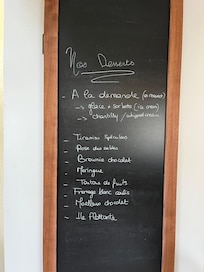 Nos Desserts
- A la demande (on request)
-> glace + sorbets (ice cream)
-> chantilly / whipped cream
- Tiramisu Spéculoos
- Rose des sables
- Brownie chocolat
- Meringue
- Tartare de fruits
- Fromage blanc coulis
- Moelleux chocolat
- Ile flottante